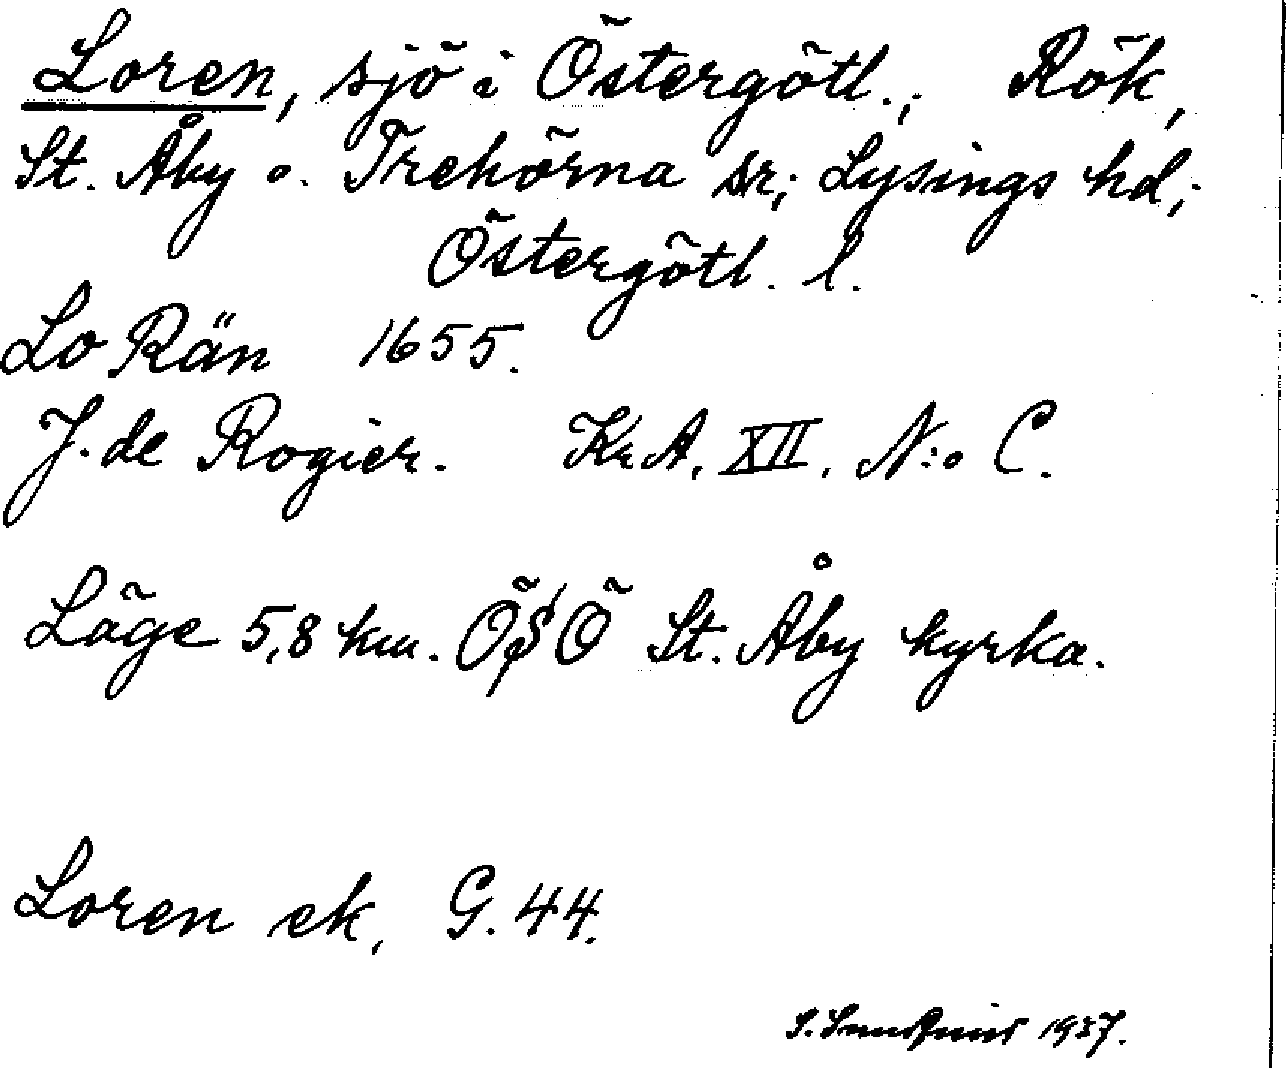 Loren, sjö i Östergötl., Rök,
St. Åby o. Trehörna sr; Lysings hd;
Östergötl. l.
Lo Rän 1655.
J. de Rogier. KrA, XII, N:o C.
Läge 5,8 km. ÖSÖ St. Åby kyrka.
Loren ek, G. 44.
1937.